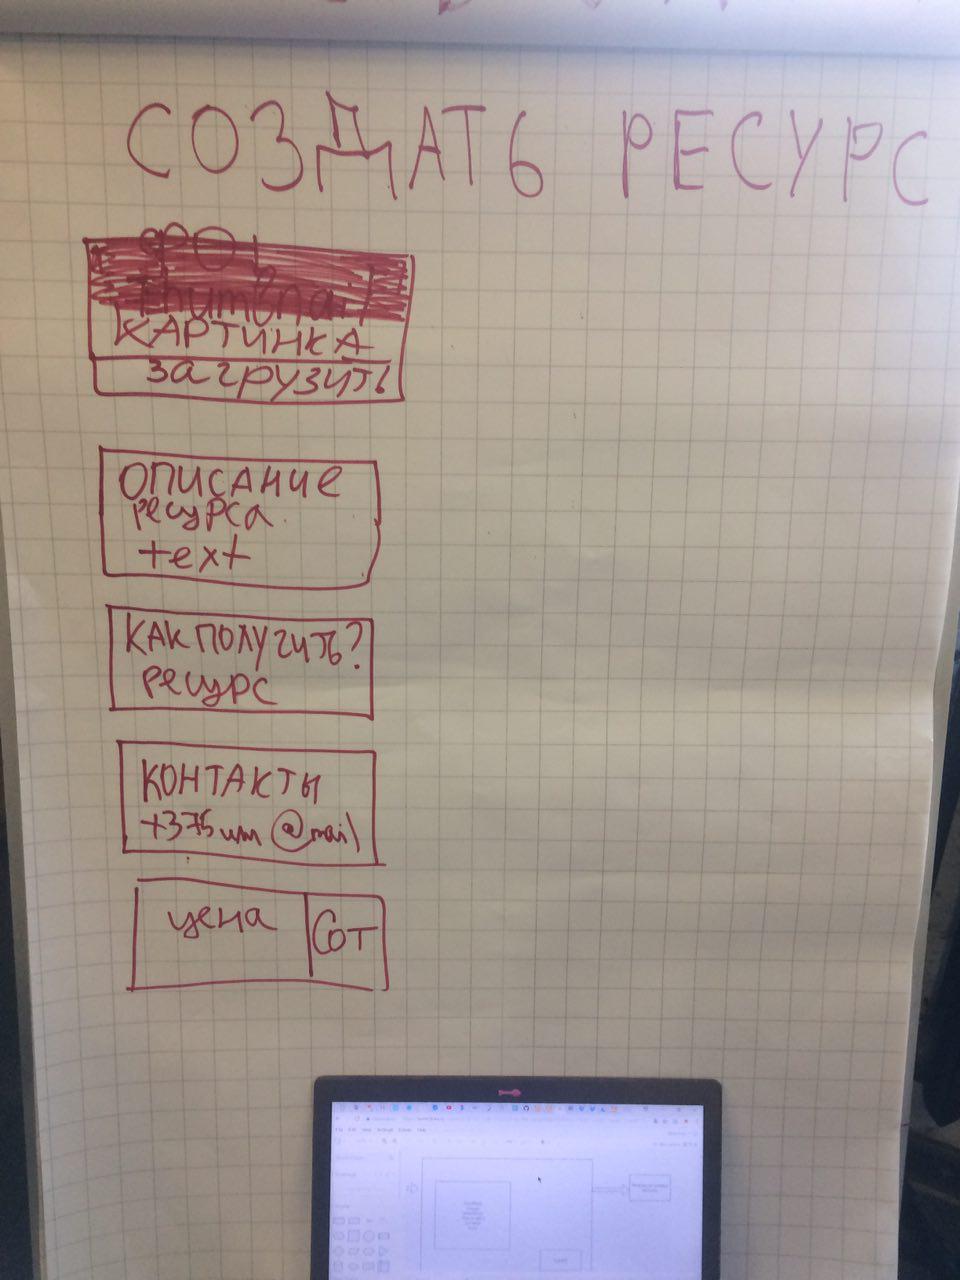 СОЗДАТЬ РЕСУРС
КАРТИНКА
загрузить
ОПИСАНИе
ресурса
text
КАК ПОЛУЧИТЬ?
ресурс
КОНТАКТЫ
@mail
цена
Сот